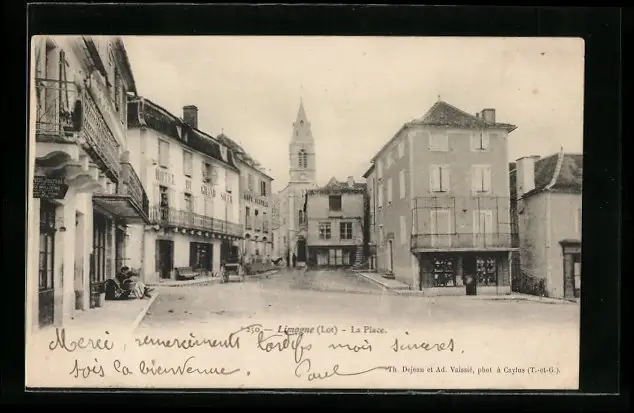 HOTEL DU GRAND SOLEIL
250 — Limogne (Lot) - La Place.
Merci, remerciements tardifs mais sinceres.
sois la bienvenue. Paul
Th Dejean et Ad. Vaissié, phot à Caylus (T.-et-G.)